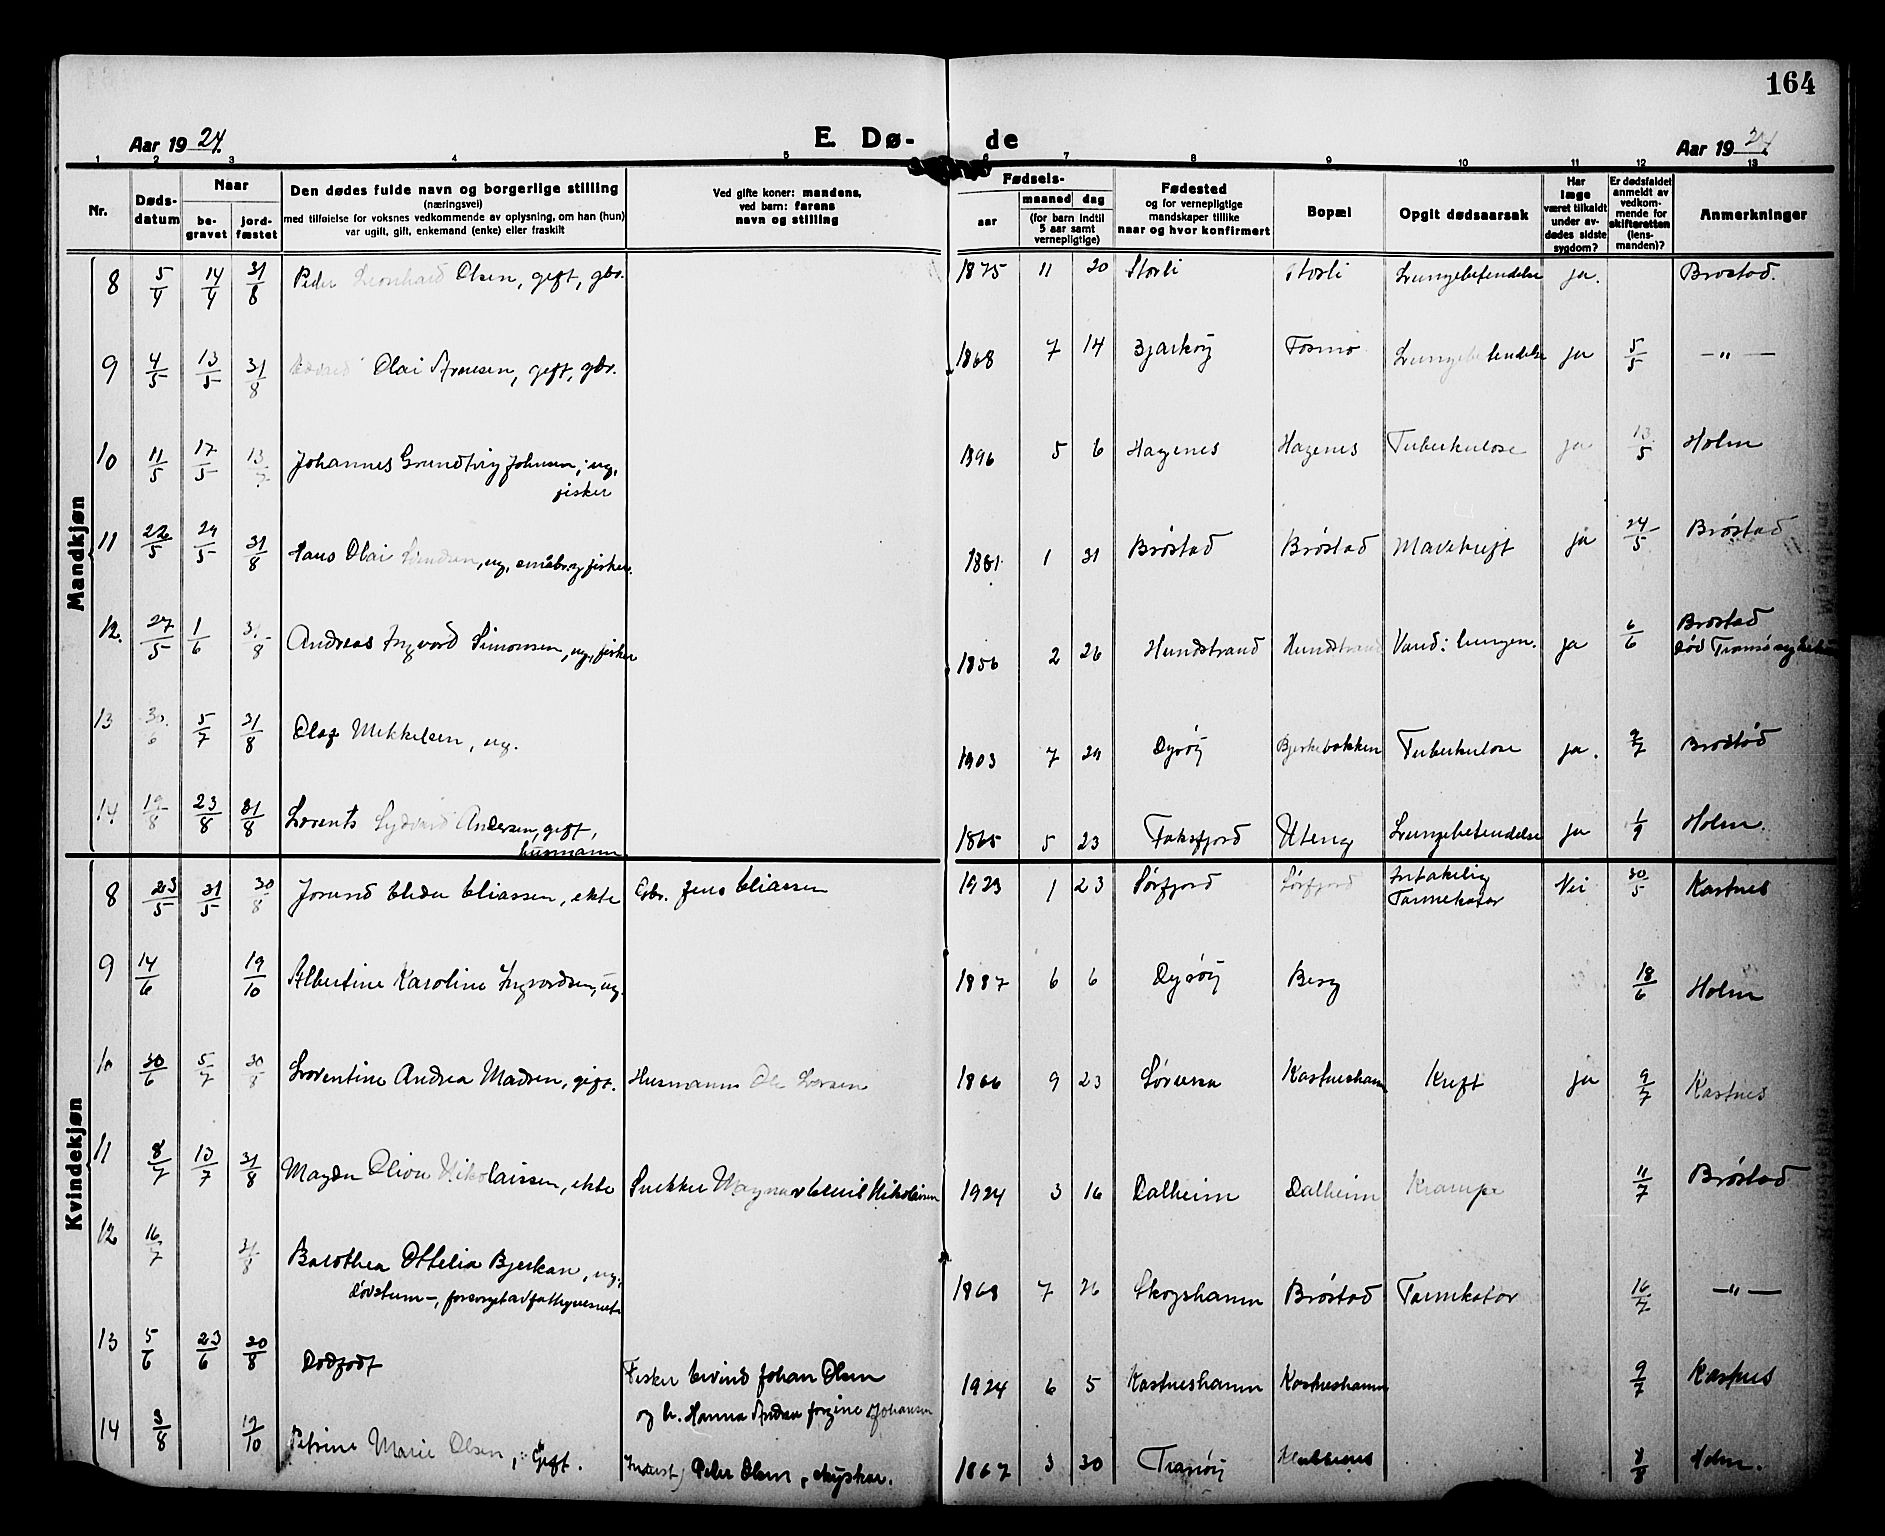 164
Aar 1924. E. Dø- de Aar 1924
1 2 3 4 5 6 7 8 9 10 11 12 13
Nr. Døds-datum Naar be-gravet jord-fæstet
Den dødes fulde navn og borgerlige stilling
(næringsvei)
med tilføielse for voksnes vedkommende av oplysning, om han (hun)
var ugift, gift, enkemand (enke) eller fraskilt
Ved gifte koner: mandens,
ved barn: farens
navn og stilling
Fødsels-
aar maaned dag
(for barn indtil
5 aar samt
vernepligtige)
Fødested
og for vernepligtige
mandskaper tillike
naar og hvor konfirmert
Bopæl
Opgit dødsaarsak
Har
læge
været tilkaldt
under av-
dødes sidste
sygdom?
Er dødsfaldet
anmeldt av
vedkom-
mende for
skifteretten
(lens-
manden)?
Anmerkninger
Mandkjøn
8 5/4 14/4 31/8 Peder Leonhard Olsen, gift, gbr. 1875 11 20 Storli Storli Lungebetendelse ja. Brøstad.
9 4/5 13/5 31/8 Olai Arnesen, gift, gbr. 1868 7 14 Bjarkøy Fosmo Lungebetendelse ja 5/5 —"—
10 11/5 17/5 13/7 Johannes Grundtvig Johnsen, ug,
fisker 1896 5 6 Hagenes Hagenes Tuberkulose ja 13/5 Holm
11 22/5 29/5 31/8 Hans Olai ug, småbr. og fisker. 1 31 Brøstad Brøstad Mavekreft ja 24/5 Brøstad
12. 27/5 1/6 31/8 Andreas Ingvard Simonsen, ug, fisker 1856 2 26 Hundstrand Hundstrand Vand i lungen. ja 6/6 Brøstad
død Tromsø sykehus
13 30/6 5/7 31/8 Olaf Mikkelsen, ug. 1903 7 29 Dyrøy Bjerkebakken Tuberkulose ja. 9/7 Brøstad
14 19/8 23/8 31/8 Lorents Sydvard Andersen, gift,
husmann 1865 5 23 Faksfjord Uteng Lungebetendelse ja 1/9 Holm.
Kvindekjøn
8 23/5 31/5 30/8 Jorund Eliassen, ekte Gbr. Jens Eliassen 1923 1 23 Sørfjord Sørfjord
Tarmekatar Nei 30/5 Kastnes
9 14/6 19/10 Albertine Karoline Ingvardsen, ug. 1887 6 6 Dyrøy Berg 18/6 Holm
10 30/6 5/7 30/8 Lorentine Andrea Madsen, gift. Husmann Ole Larsen 1866 9 23 Sørreisa Kastneshamn Kreft ja 9/7 Kastnes
11 8/7 13/7 31/8 Magda Oliou Nikolaissen, ekte Snekker Magnar Emil Nikolaisen 1924 3 16 Dalheim Dalheim Krampe 11/7 Brøstad
12 16/7 31/8 Barothea Ottelia Bjerkan, ug,
døvstum –, forsørget av fattigvesenet 1868 7 26 Skogshamn Brøstad Tarmekatar 16/7 —"—
13 5/6 23/6 30/8 Dødfødt Fisker Eivind Johan Olsen
og h. Hanna Andrea Jørgine Johansen 1924 6 5 Kastneshamn Kastneshamn 9/7 Kastnes
14 3/8 19/10 Petrine Marie Olsen, Gift. Inderst, Peder Olsen, skysskar. 1867 3 30 Tranøy Klubbenes 8/8 Holm.